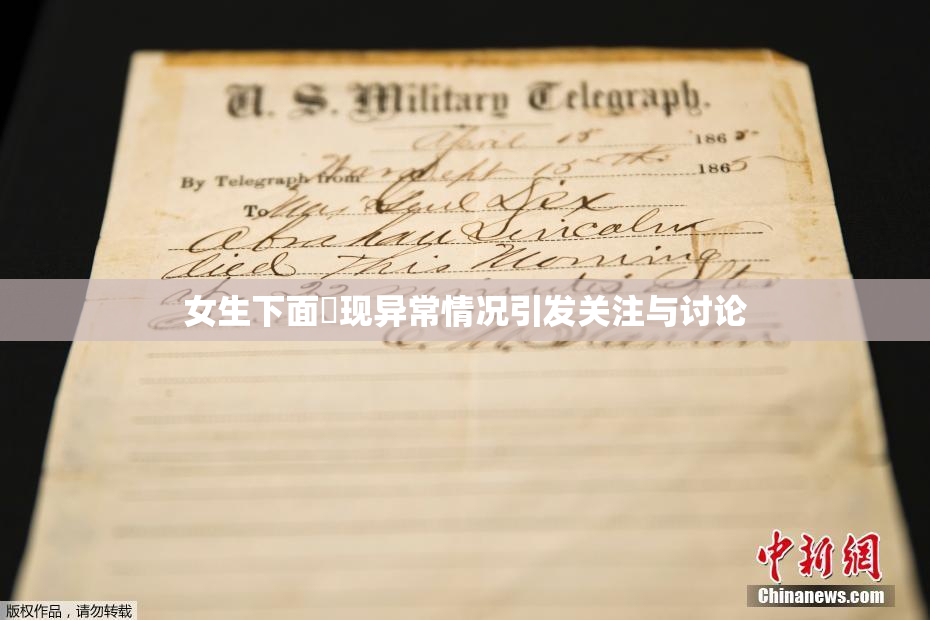 U. S. Military Telegraph.
April 15 1865
By Telegraph from War Dept 15th 1865
To Maj Genl Dix
Abraham Lincoln
died This Morning
at 22 minutes after
女生下面现异常情况引发关注与讨论
中新网
Chinanews.com
版权作品，请勿转载